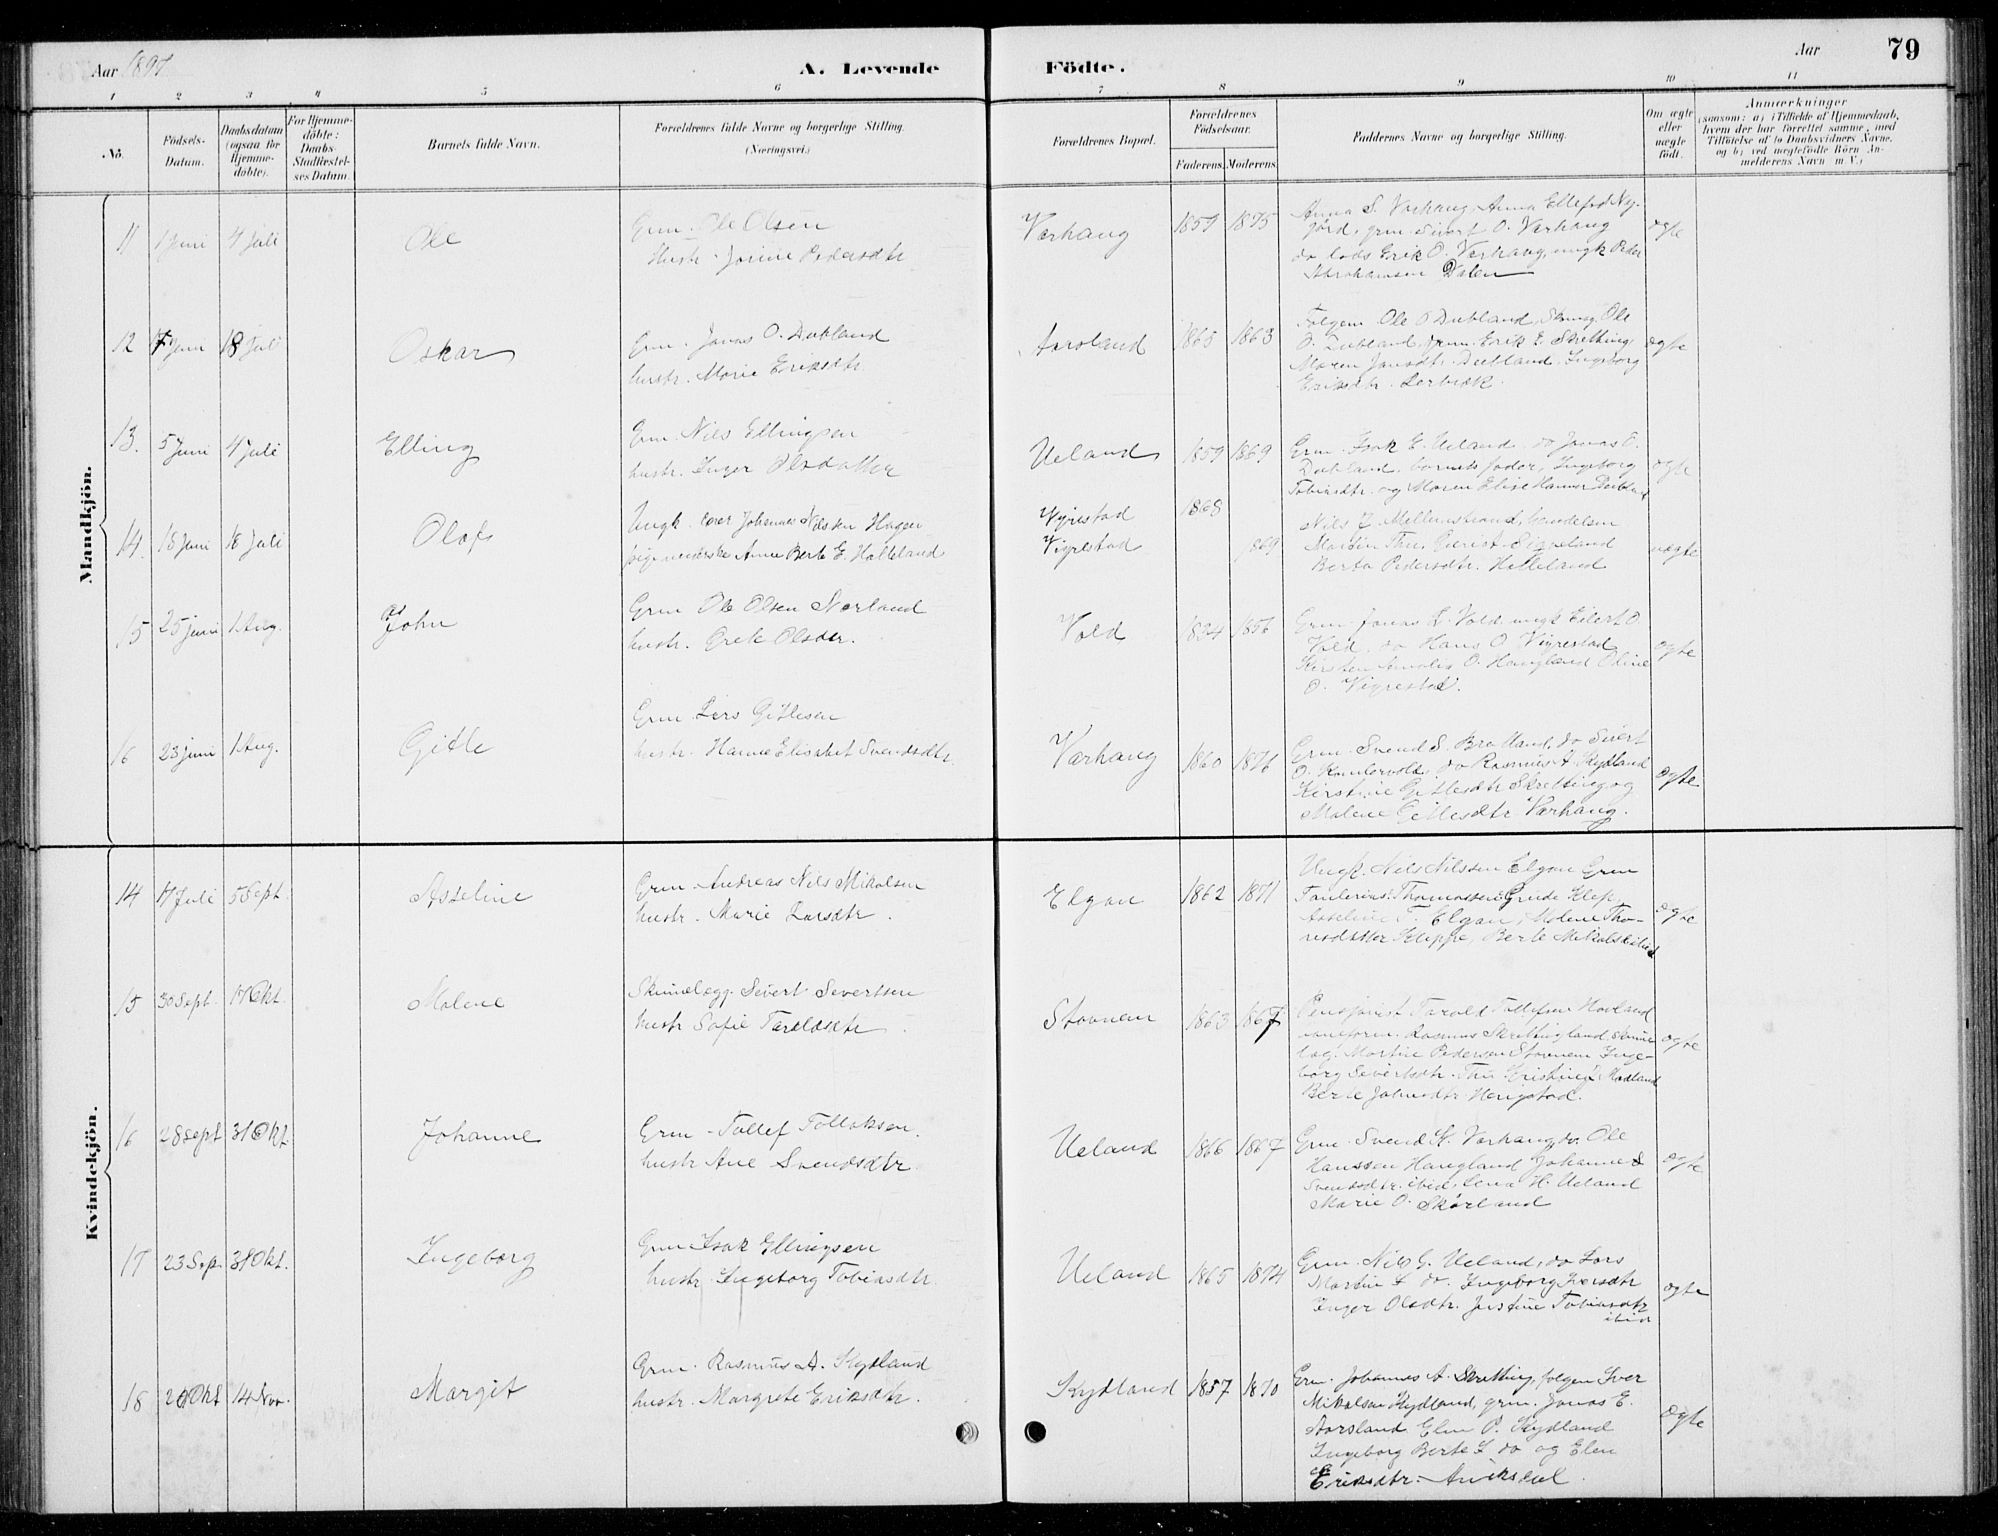 Aar 1897
A. Levende
Födte.
Aar
79
1
2
3
4
5
6
7
8
9
10
11
No.
Födsels-
Datum.
Daabsdatum
(ogsaa for
Hjemme-
döbte).
For Hjemme-
döbte:
Daabs-
Stadfæstel-
ses Datum.
Barnets fulde Navn.
Forældrenes fulde Navne og borgerlige Stilling.
(Næringsvei.)
Forældrenes Bopæl.
Forældrenes
Födselsaar.
Faderens.
Moderens.
Faddernes Navne og borgerlige Stilling.
Om ægte
eller
uægte
født.
Anmærkninger
(saasom: a) i Tilfælde af Hjemmedaab,
hvem der har forrettet samme, med
Tilföielse af to Daabsvidners Navne,
og b) ved uægtefödte Börn An-
melderens Navn m. V.)
Mandkjön.
11 1 Juni 4 Juli Ole
Grm. Ole Olsen
Hustr. Jorine Pedersdtr
Varhaug 1857 1875
Anna S. Varhaug, Anna Ellefsd Ny-
gård, grm. Sivert O. Varhaug
do lods Erik O. Varhaug, ungk Peder
Abrahamsen Dalen
ægte
12 7 Juni 18 Juli Oskar
Grm. Jonas O. Dubland
hustr. Marie Eriksdtr.
Aarsland 1865 1863
Følgem Ole O Dubland, Ole
O. Dubland, grm. Erik E. Skretting,
Maren Jonsdtr. Dubland, Ingeborg
Eriksdtr. Lerbræk.
ægte
13. 5 Juni 4 Juli Elling
Grm. Nils Ellingsen
hustr. Inger Olsdatter
Ueland 1859 1869
Grm. Isak E. Ueland, do Jonas O.
Dubland, barnets fader, Ingeborg
Tobiasdtr. og Maren Elise Hanner Dubland
ægte
14. 18 Juni 18 Juli Olaf
Ungk. lærer Johannes Nilssen Hagen
pigemenneske Anne Berte E. Hølleland
Vigrestad 1868
Vigrestad 869
Nils J. Mellemstrand, handelsm
Martin Thu, Sigveland
Berta Pedersdtr. Helleland
uægte
15 25 juni 1 Aug. John
Grm Ole Olsen Nærland
hustr. Grete Olsdtr.
Vold 1834 1856
Grm. Jonas L. Vold, ungk Eilert O.
Vold, do Hans O. Vigrestad
Kirsten Amalia O. Haugland Oline
O. Vigrestad.
ægte
16 23 juni 1 Aug. Gitle
Grm. Lars Gitlesen
hustr. Hanne Elisabet Svendsdtr.
Varhaug 1860 1876
Grm. Svend S. Bratland, do Sivert
O. do Rasmus A. Kydland
Kirstine Gitlesdtr Skretting og
Malene Gitlesdtr Varhaug.
ægte
Kvindekjön.
14 17 Juli 5 Sept. Asseline
Grm. Andreas Nils Mikalsen
hustr. Marie Larsdtr.
Elgan 1862 1871
Ungk. Nils Nilssen Elgan Grm
Thomassen Grude Klep
Asseline T. Elgan, Malene Tho-
Kleppe, Berte
ægte
15 30 Sept. 17 Okt. Malene
Skindlægg. Sivert Severtsen
hustr Sofie Taraldsdtr
Stovnem 1863 1867
Pensjonist Tarald Tollefsen Hovland
Rasmus Skrettingland
Martin Pedersen Stovnem Inge-
borg Severtsdtr. Thu Kristine J. Madland
Berte Johnsdtr Haugstad.
ægte
16 28 Sept 31 Okt. Johanne
Grm. Tollef Tollaksen
hustr Ane Svendsdtr
Ueland 1866 1867
Grm. Svend K. Varhaug, do. Ole
Hanssen Haugland Johanne S
Svendsdtr. ibid. Lena H. Ueland
Marie O. Skårland
ægte
17 23 Sep. 31 Okt. Ingeborg
Grm Isak Ellingsen
hustr. Ingeborg Tobiasdtr
Ueland 1865 1874
Grm. Nils G. Ueland, do Lars
Martin L do. Ingeborg Iversdtr
Inger Olsdtr. Justine Tobiasdtr
ibid
ægte
18 20 Okt 14 Nov. Margit
Grm. Rasmus A. Kydland
hustr. Margrete Eriksdtr.
Kydland 1857 1870
Grm. Johannes A. Skretting, følgem Iver
Mikalsen Kydland, grm. Jonas E.
Aarsland Elen P. Kydland
Ingeborg Berte L do og Elen
Eriksdtr. Aniksdal.
ægte